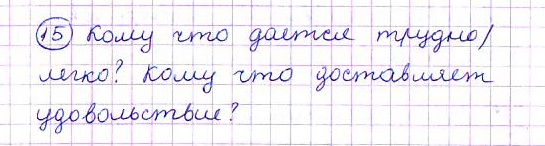 15 Кому что дается трудно/
легко? Кому что доставляет
удовольствие?